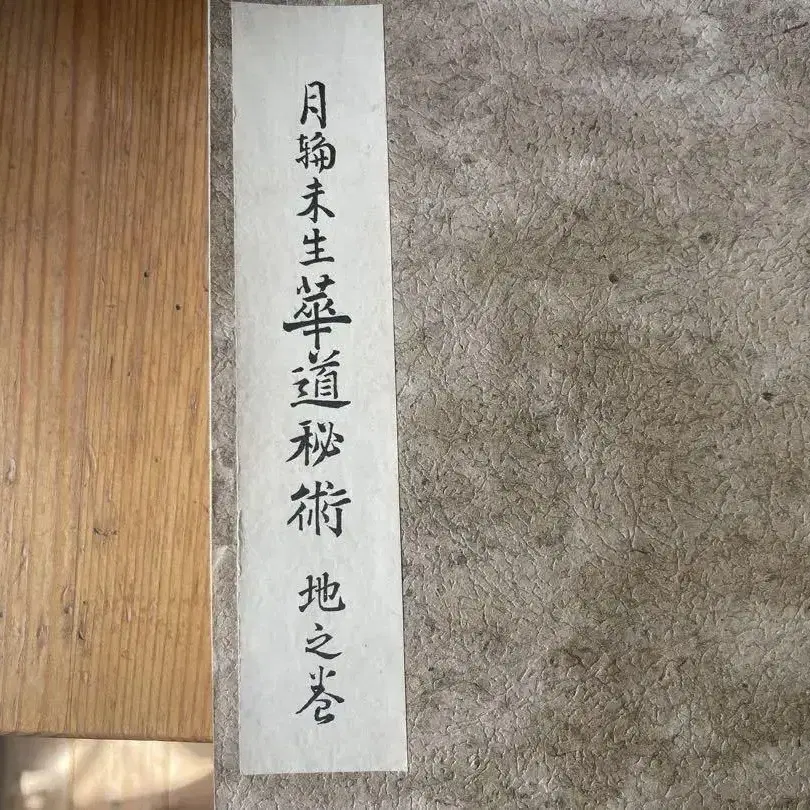 月輪未生華道秘術 地之巻